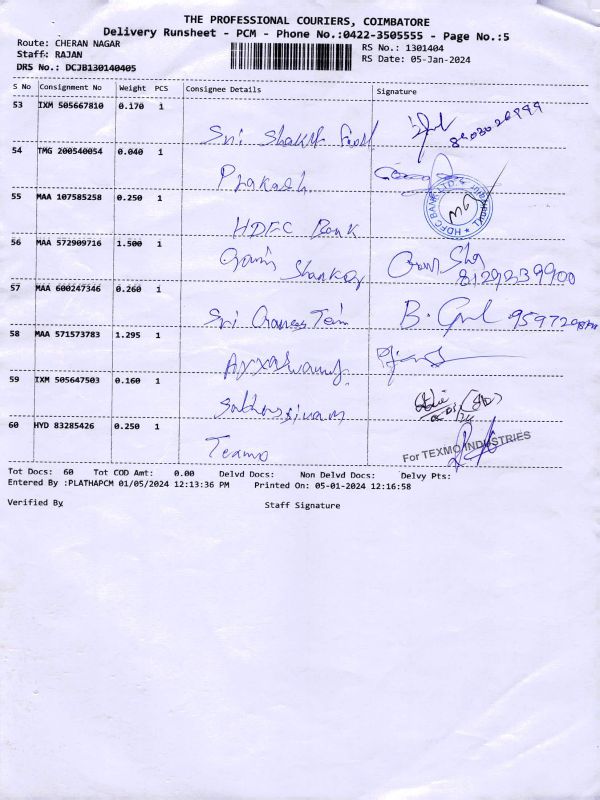 THE PROFESSIONAL COURIERS, COIMBATORE
Delivery Runsheet - PCM - Phone No.:0422-3505555 - Page No.:5
Route: CHERAN NAGAR RS No.: 1301404
Staff: RAJAN RS Date: 05-Jan-2024
DRS No.: DCJB130140405
S No Consignment No Weight PCS Consignee Details Signature
53 IXM 505667810 0.170 1
Sri Shakti
54 TMG 200540054 0.040 1
Prakash
55 MAA 107585258 0.250 1
HDFC BANK LTD
HDFC Bank
56 MAA 572909716 1.500 1
Shankar
8129239900
57 MAA 600247346 0.260 1
Sri Team B.
58 MAA 571573783 1.295 1
59 IXM 505647503 0.160 1
60 HYD 83285426 0.250 1
For TEXMO INDUSTRIES
Texmo
Tot Docs: 60 Tot COD Amt: 0.00 Delvd Docs: Non Delvd Docs: Delvy Pts:
Entered By :PLATHAPCM 01/05/2024 12:13:36 PM Printed On: 05-01-2024 12:16:58
Verified By Staff Signature